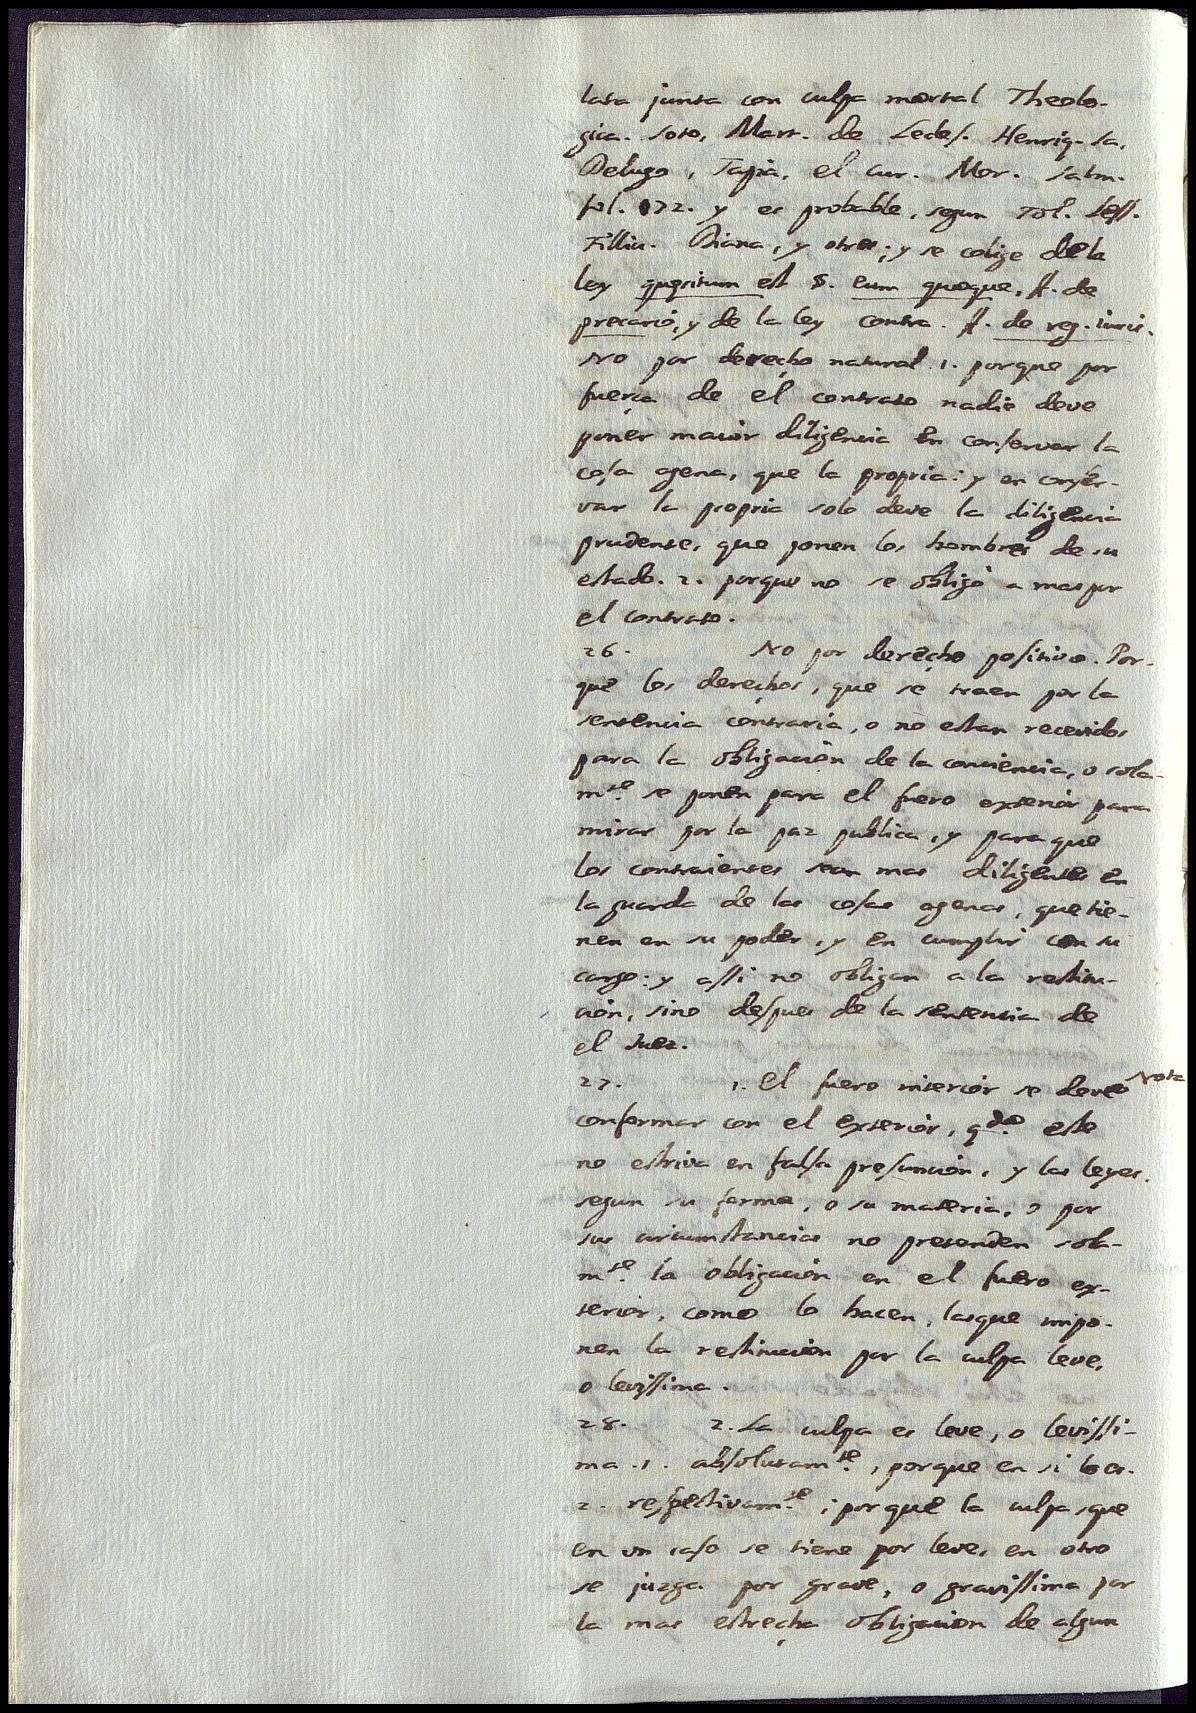 lata junta con culpa mortal Theolo-
gica. Soto, Mart. de Ledes. Henriq. Sa,
Delugo, Tapia, el Cur. Mor. Salm.
fol. 172. y es probable, segun Tol. Less.
Filliu. Diana, y otros; y se colige de la
ley quęsitum est §. eum quoque, ff. de
precario, y de la ley contra. ff. de reg. iuris.
No por derecho natural .1. porque por
fuerça de el contrato nadie deve
poner maior diligencia en conservar la
cosa agena, que la propria: y en conser-
var la propria solo deve la diligencia
prudente, que ponen los hombres de su
estado. 2. porque no se obligò a mas por
el contrato.
26. No por derecho positivo. Por-
que los derechos, que se traen por la
sentencia contraria, o no estan recevidos
para la obligacion de la conciencia, o sola-
mte. se ponen para el fuero exterior para
mirar por la paz publica, y para que
los contraientes sean mas diligentes en
la guarda de las cosas agenas, que tie-
nen en su poder, y en cumplir con su
cargo: y assi no obligan a la restitu-
cion, sino despues de la sentencia de
el Juez.
27. 1. El fuero interior se deve Nota
conformar con el exterior, qdo. este
no estriva en falsa presuncion, y las leyes,
segun su forma, o su materia, o por
sus circumstancias no pretenden sola-
mte. la obligacion en el fuero ex-
terior, como lo hacen, las que impo-
nen la restitucion por la culpa leve,
o levissima.
28. 2. La culpa es leve, o levissi-
ma .1. absolutamte., porque en si lo es.
2. respectivamte.; porque la culpa, que
en un caso se tiene por leve, en otro
se juzga por grave, o gravissima por
la mas estrecha obligacion de algun